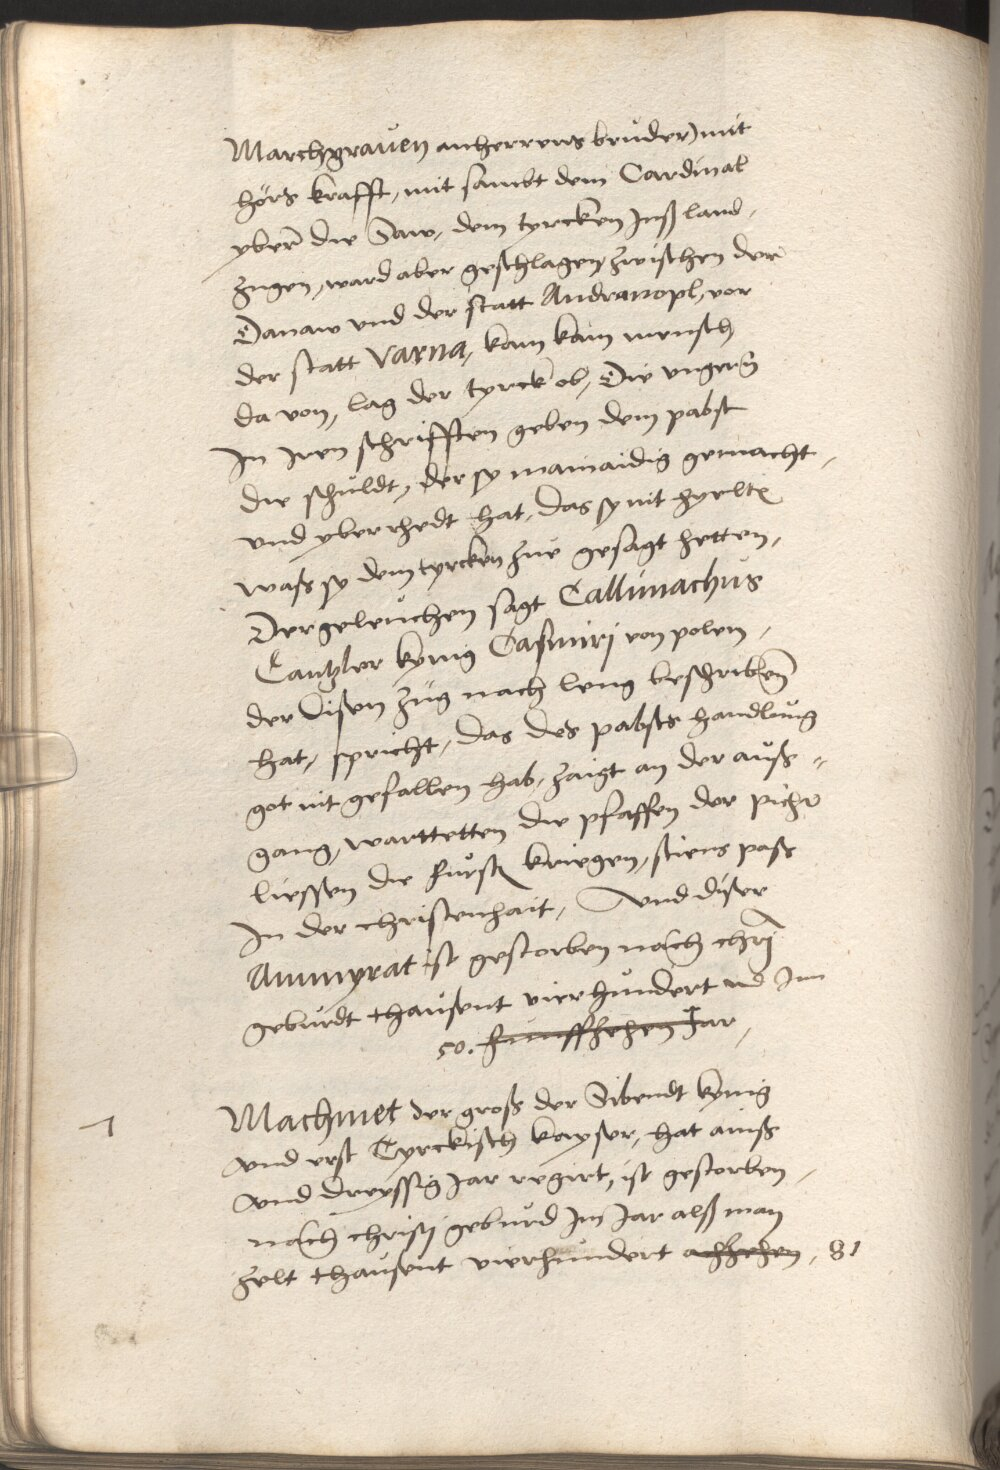 Marchgrauen anherrens bruder) mit
hörs krafft, mit sambt dem Cardinal
yber die Saw, dem tyrcken Inß land,
zugen, ward aber geschlagen zwischen der
Danaw vnd der statt Andranopl, vor
der statt Varna, kam kain mensch
da von, lag der tyrck ob, Die vngern̄
In Iren schrifften geben dem pabst
die schuldt, der sy mainaidig gemacht,
vnd yberrhedt hat, das sy nit hyelt
waß sy dem tyrcken zue gesagt hetten,
Dergeleichen sagt Callimachus
Cantzler kynig Casimiri von polen,
der disen zug nach leng beschriben
hat, spricht, das des pabsts handlung
got nit gefallen hab, zaigt an der auß-
gang, warttetten die pfaffen der piehr
liessen die fürst kriegen, stiens paß
In der christenhait, Vnd diser
Ammyrat ist gestorben nach chrj
geburdt thausent vierhundert vnd Im
50. funffzehen Jar,
7 Machmet der groß der Sibendt kynig
vnd erst Tyrckisch kayser, hat ainß
vnd dreyssig Jar regirt, ist gestorben,
nach christj geburd Im Jar alß man
zelt thausent vierhundert achzehen, 81